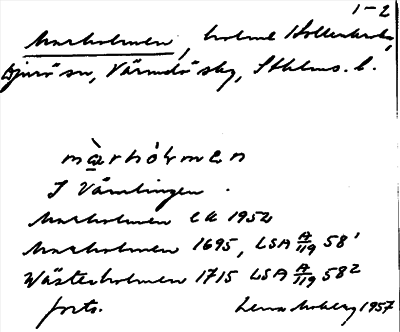 1-2
Marholmen, holme
Djurö sn, Värmdö skg, Sthlms. l.
màrhólmen
I Vämlingen.
Marholmen EK 1952
Marholmen 1695, LSA A/119 58¹
Wästerholmen 1715 LSA A/119 58²
forts.
Lena Moberg 1957